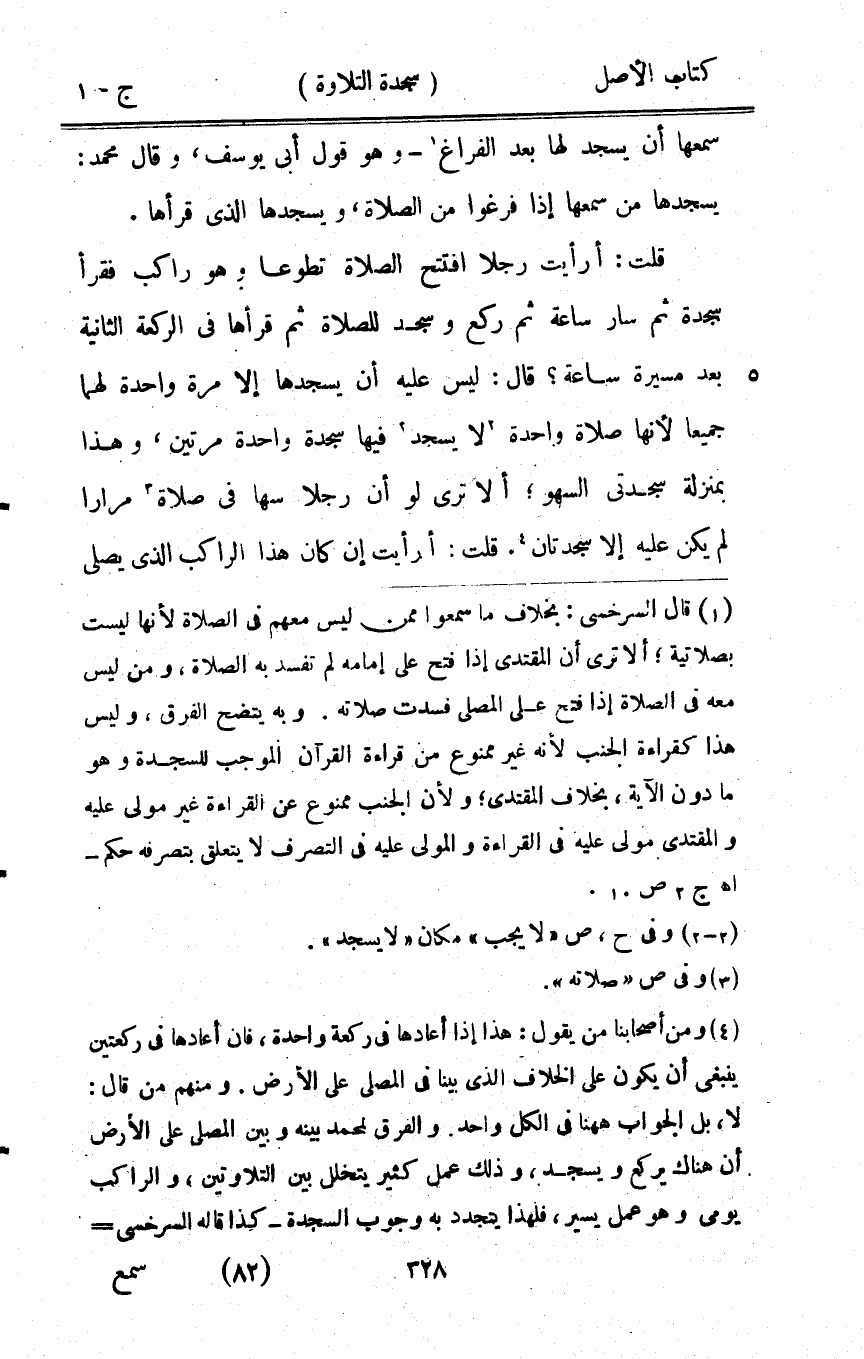 كتاب الأصل (سجدة التلاوة) ج - ١
سمعها أن يسجد لها بعد الفراغ١ - و هو قول أبى يوسف، و قال محمد:
يسجدها من سمعها إذا فرغوا من الصلاة، و يسجدها الذى قرأها .
قلت: أرأيت رجلا افتتح الصلاة تطوعا و هو راكب فقرأ
سجدة ثم سار ساعة ثم ركع و سجد للصلاة ثم قرأها فى الركعة الثانية
٥ بعد مسيرة ساعة؟ قال: ليس عليه أن يسجدها إلا مرة واحدة لهما
جميعا لأنها صلاة واحدة ٢لا يسجد٢ فيها سجدة واحدة مرتين، و هذا
بمنزلة سجدتى السهو؛ ألا ترى لو أن رجلا سها فى صلاة٣ مرارا
لم يكن عليه إلا سجدتان٤. قلت: أرأيت إن كان هذا الراكب الذى يصلى
(١) قال السرخسى: بخلاف ما سمعوا ممن ليس معهم فى الصلاة لأنها ليست
بصلاتية؛ ألا ترى أن المقتدى إذا فتح على إمامه لم تفسد به الصلاة، و من ليس
معه فى الصلاة إذا فتح على المصلى فسدت صلاته . و به يتضح الفرق، و ليس
هذا كقراءة الجنب لأنه غير ممنوع من قراءة القرآن الموجب للسجدة و هو
ما دون الآية، بخلاف المقتدى؛ و لأن الجنب ممنوع عن القراءة غير مولى عليه
و المقتدى مولى عليه فى القراءة و المولى عليه فى التصرف لا يتعلق بتصرفه حكم -
اه ج ٢ ص ١٠ .
(٢-٢) و فى ح، ص «لا يجب» مكان «لا يسجد» .
(٣) و فى ص «صلاته» .
(٤) و من أصحابنا من يقول: هذا إذا أعادها فى ركعة واحدة، فان أعادها فى ركعتين
ينبغى أن يكون على الخلاف الذى بينا فى المصلى على الأرض . و منهم من قال:
لا، بل الجواب ههنا فى الكل واحد . و الفرق لمحمد بينه و بين المصلى على الأرض
أن هناك يركع و يسجد، و ذلك عمل كثير يتخلل بين التلاوتين، و الراكب
يومى و هو عمل يسير، فلهذا يتجدد به وجوب السجدة - كذا قاله السرخسى =
٣٢٨ (٨٢) سمع